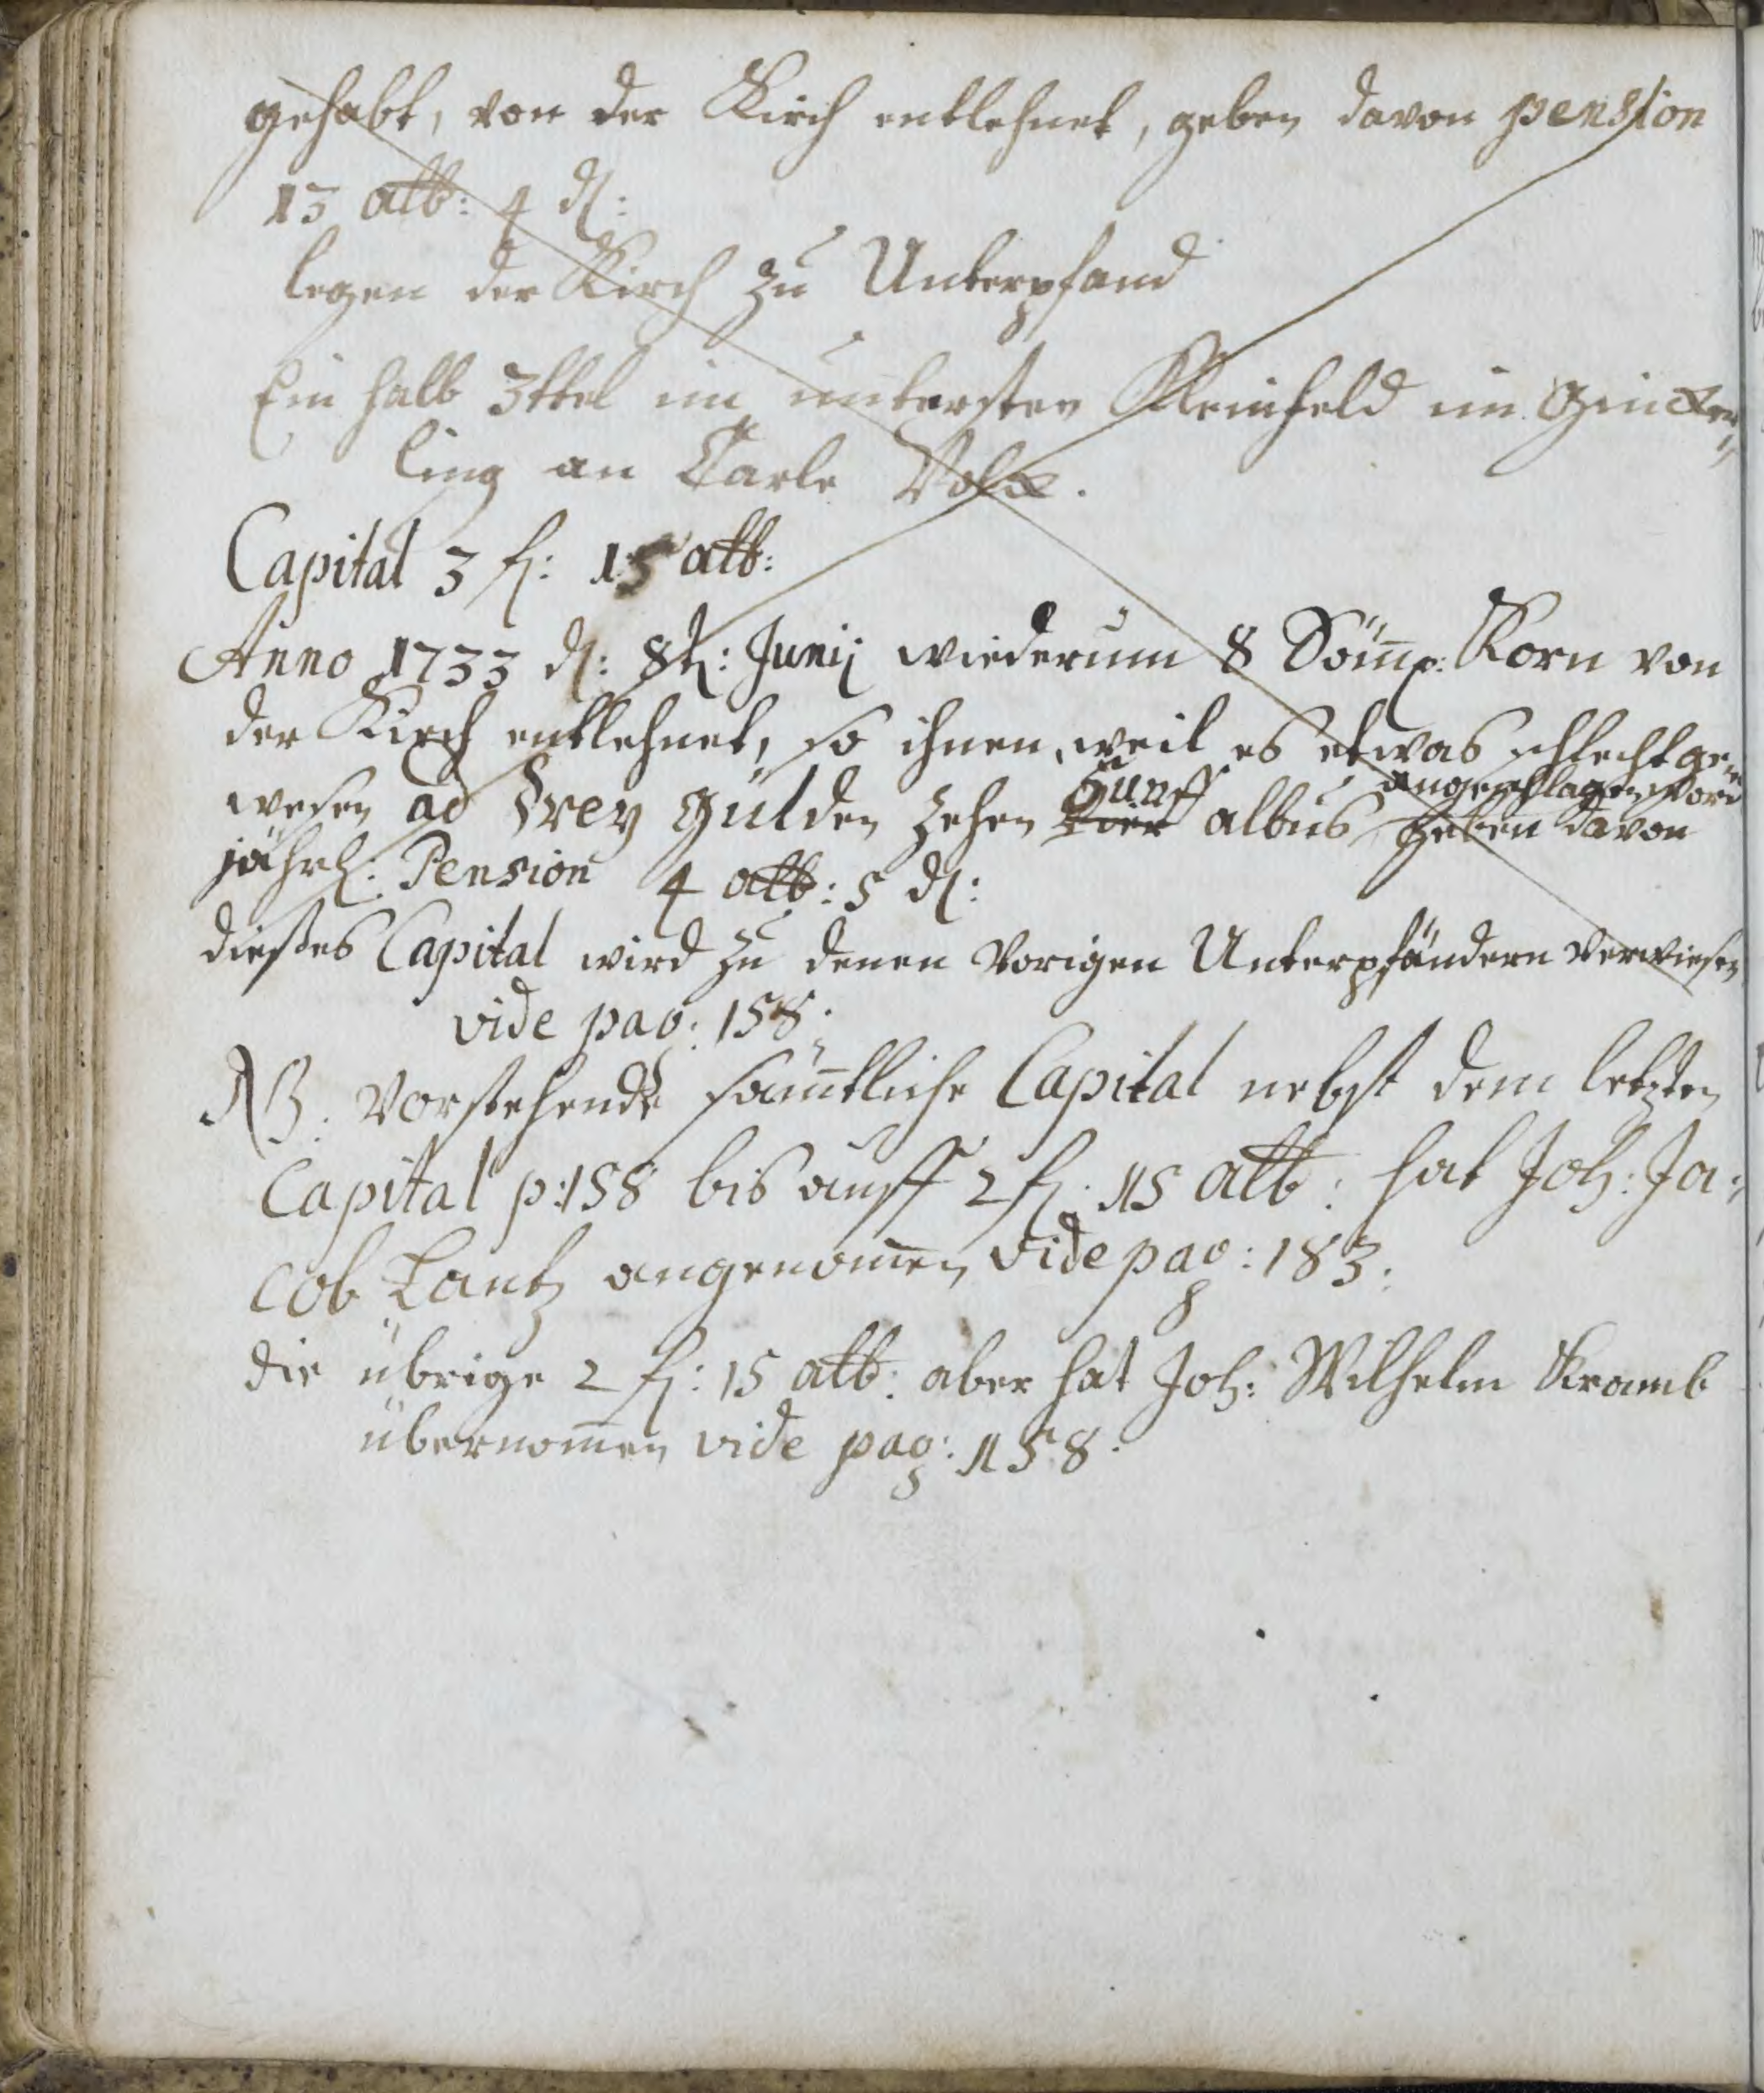 gehabt, von der Kirch entlehnet, geben davon pension
13 alb: 4 d:
legen der Kirch zu Unterpfand
Ein halb 3ttel im untersten Kleinfeld im
ling an Carle Volck.
Capital 3 fl: 15 alb:
Anno 1733 d: 8t: Junij wiederum 8 Söm̄r: Korn von
der Kirch entlehnet, so ihnen, weil es etwas schlecht ge-
fünff angeschlagen word
wesen ad drey gülden zehen vier albus geben davon
jährl: Pension 4 alb: 5 d:
dießes Capital wird zu denen vorigen Unterpfändern verwiesen
vide pag: 158.
NB. Vorstehende sam̄tliche Capital nebst dem letzten
Capital p: 158 bis auff 2 fl: 15 alb: hat Joh: Ja-
cob Lantz angenom̄en vide pag: 183.
die übrige 2 fl: 15 alb: aber hat Joh: Wilhelm Kramb
übernom̄en vide pag: 158.